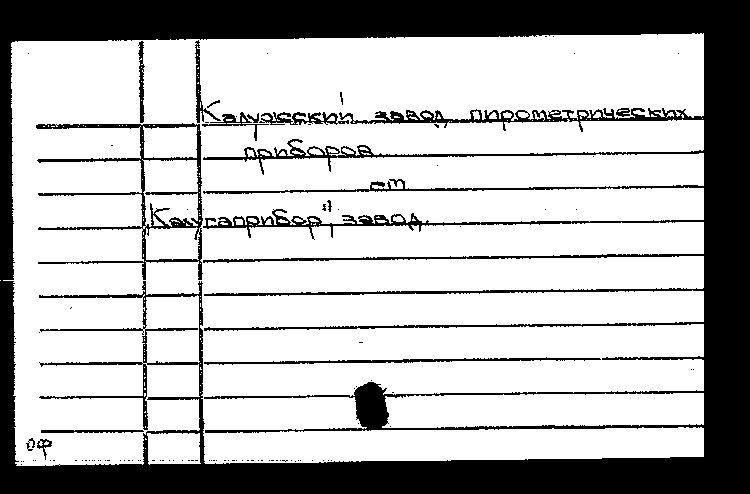 Калужский завод пирометрических
приборов
от
„Калугаприбор", завод.
ОФ